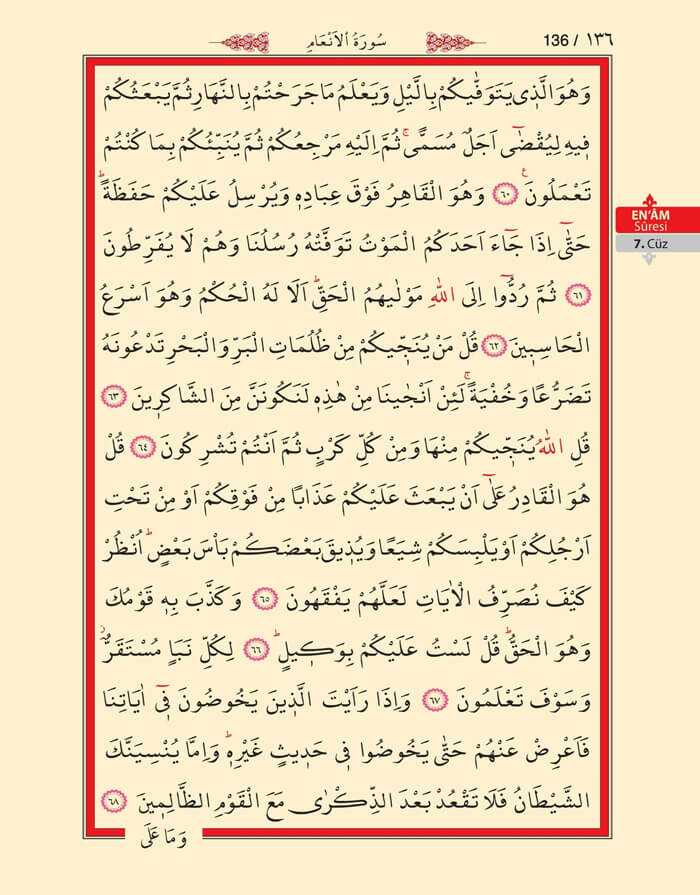 136 / ١٣٦
سُورَةُ الْاَنْعَامِ
وَهُوَ الَّذ۪ي يَتَوَفّٰيكُمْ بِالَّيْلِ وَيَعْلَمُ مَا جَرَحْتُمْ بِالنَّهَارِ ثُمَّ يَبْعَثُكُمْ
ف۪يهِ لِيُقْضٰٓى اَجَلٌ مُسَمًّىۚ ثُمَّ اِلَيْهِ مَرْجِعُكُمْ ثُمَّ يُنَبِّئُكُمْ بِمَا كُنْتُمْ
تَعْمَلُونَ۟ ﴿٦٠﴾ وَهُوَ الْقَاهِرُ فَوْقَ عِبَادِه۪ وَيُرْسِلُ عَلَيْكُمْ حَفَظَةًۜ
حَتّٰٓى اِذَا جَٓاءَ اَحَدَكُمُ الْمَوْتُ تَوَفَّتْهُ رُسُلُنَا وَهُمْ لَا يُفَرِّطُونَ
﴿٦١﴾ ثُمَّ رُدُّٓوا اِلَى اللّٰهِ مَوْلٰيهُمُ الْحَقِّۜ اَلَا لَهُ الْحُكْمُ وَهُوَ اَسْرَعُ
الْحَاسِب۪ينَ ﴿٦٢﴾ قُلْ مَنْ يُنَجّ۪يكُمْ مِنْ ظُلُمَاتِ الْبَرِّ وَالْبَحْرِ تَدْعُونَهُ
تَضَرُّعًا وَخُفْيَةًۚ لَئِنْ اَنْجٰينَا مِنْ هٰذِه۪ لَنَكُونَنَّ مِنَ الشَّاكِر۪ينَ ﴿٦٣﴾
قُلِ اللّٰهُ يُنَجّ۪يكُمْ مِنْهَا وَمِنْ كُلِّ كَرْبٍ ثُمَّ اَنْتُمْ تُشْرِكُونَ ﴿٦٤﴾ قُلْ
هُوَ الْقَادِرُ عَلٰٓى اَنْ يَبْعَثَ عَلَيْكُمْ عَذَابًا مِنْ فَوْقِكُمْ اَوْ مِنْ تَحْتِ
اَرْجُلِكُمْ اَوْ يَلْبِسَكُمْ شِيَعًا وَيُذ۪يقَ بَعْضَكُمْ بَأْسَ بَعْضٍۜ اُنْظُرْ
كَيْفَ نُصَرِّفُ الْاٰيَاتِ لَعَلَّهُمْ يَفْقَهُونَ ﴿٦٥﴾ وَكَذَّبَ بِه۪ قَوْمُكَ
وَهُوَ الْحَقُّۜ قُلْ لَسْتُ عَلَيْكُمْ بِوَك۪يلٍۜ ﴿٦٦﴾ لِكُلِّ نَبَأٍ مُسْتَقَرٌّۘ
وَسَوْفَ تَعْلَمُونَ ﴿٦٧﴾ وَاِذَا رَاَيْتَ الَّذ۪ينَ يَخُوضُونَ ف۪ٓي اٰيَاتِنَا
فَاَعْرِضْ عَنْهُمْ حَتّٰى يَخُوضُوا ف۪ي حَد۪يثٍ غَيْرِه۪ۜ وَاِمَّا يُنْسِيَنَّكَ
الشَّيْطَانُ فَلَا تَقْعُدْ بَعْدَ الذِّكْرٰى مَعَ الْقَوْمِ الظَّالِم۪ينَ ﴿٦٨﴾
وَمَا عَلَى
EN'ÂM
Sûresi
7. Cüz